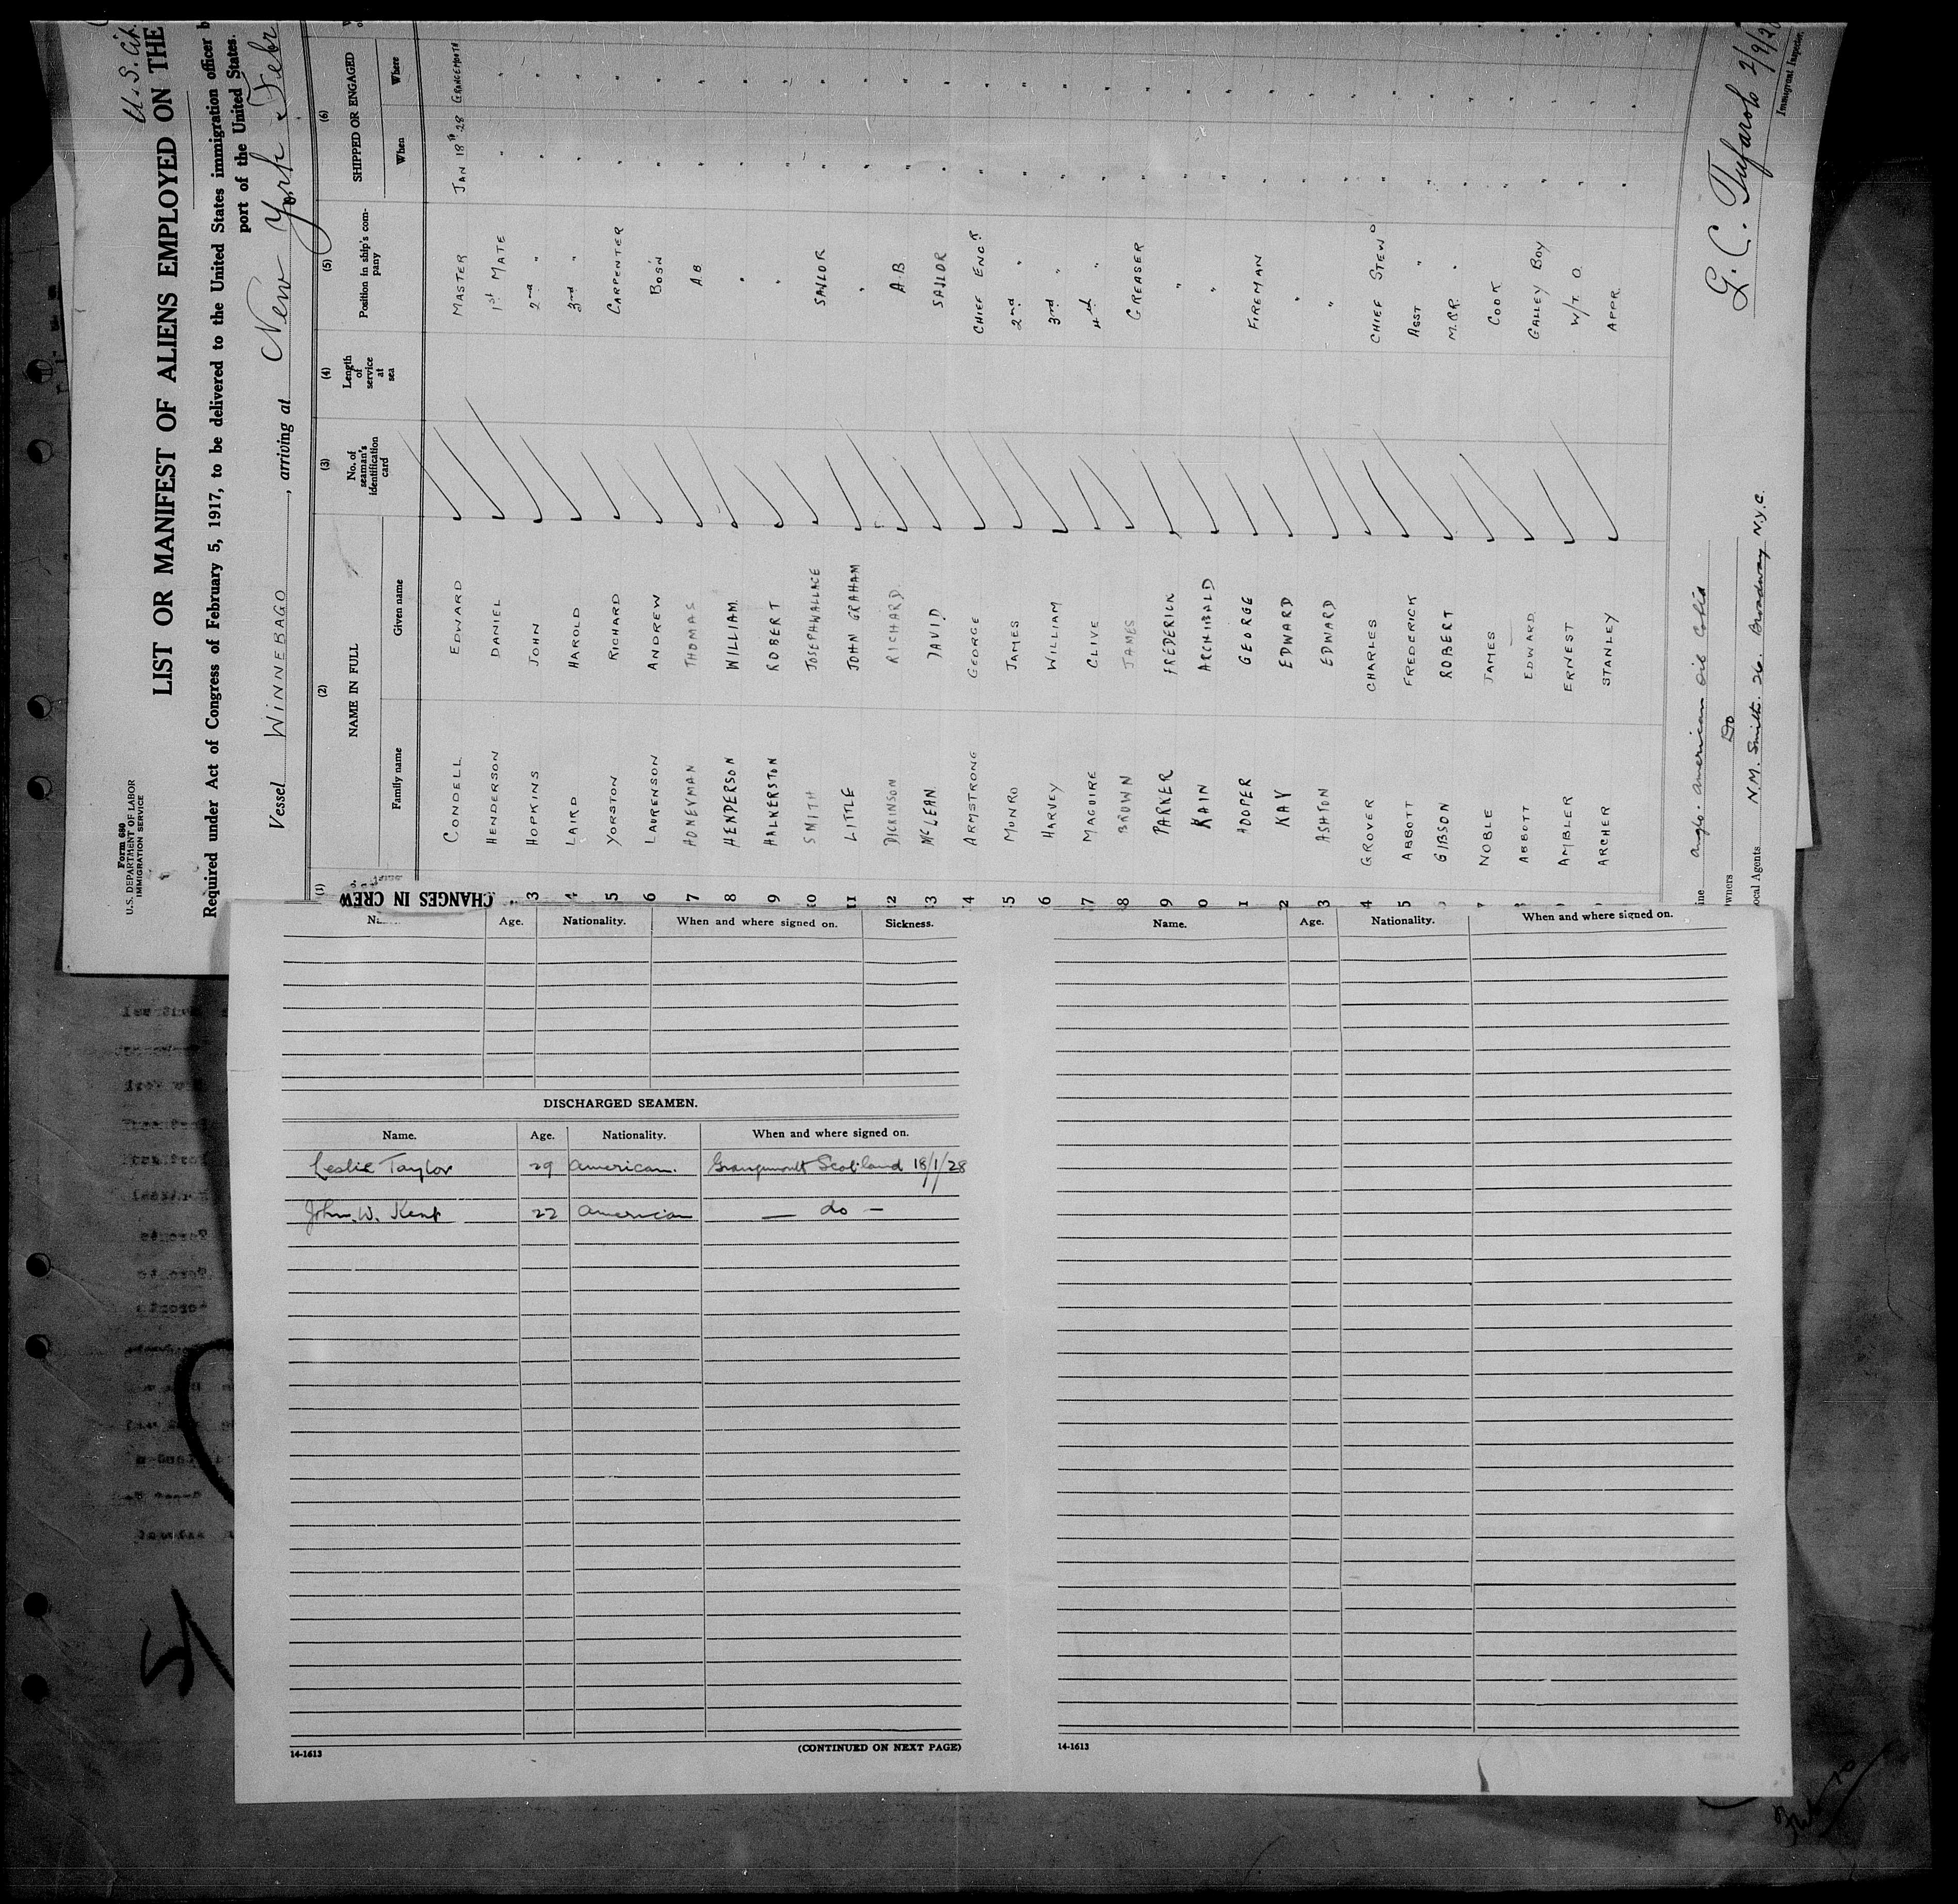 Form 680
U.S. DEPARTMENT OF LABOR
IMMIGRATION SERVICE
U.S. Cit.
LIST OR MANIFEST OF ALIENS EMPLOYED ON THE
Required under Act of Congress of February 5, 1917, to be delivered to the United States immigration officer b
port of the United States.
Vessel WINNEBAGO, arriving at New York, Febr
(1) (2) (3) (4) (5) (6)
NAME IN FULL No. of seaman's identification card Length of service at sea Position in ship's company SHIPPED OR ENGAGED
Family name Given name When Where
CONDELL EDWARD MASTER JAN 18th 28 GRANGEMOUTH
HENDERSON DANIEL 1st MATE " "
3 HOPKINS JOHN 2nd " " "
4 LAIRD HAROLD 3rd " " "
5 YORSTON RICHARD CARPENTER " "
6 LAURENSON ANDREW BOSN " "
7 HONEYMAN THOMAS A.B. " "
8 HENDERSON WILLIAM " " "
9 HALKERSTON ROBERT " " "
10 SMITH JOSEPH WALLACE SAILOR " "
11 LITTLE JOHN GRAHAM " " "
12 DICKINSON RICHARD A.B " "
13 McLEAN DAVID SAILOR " "
4 ARMSTRONG GEORGE CHIEF ENGR " "
5 MUNRO JAMES 2nd " " "
6 HARVEY WILLIAM 3rd " " "
7 MAGUIRE CLIVE 4th " " "
8 BROWN JAMES GREASER " "
9 PARKER FREDERICK " " "
0 KAIN ARCHIBALD " " "
1 HOOPER GEORGE FIREMAN " "
2 KAY EDWARD " " "
3 ASHTON EDWARD " " "
4 GROVER CHARLES CHIEF STEWD " "
5 ABBOTT FREDERICK ASST " " "
GIBSON ROBERT M.R.R. " " "
NOBLE JAMES COOK " "
ABBOTT EDWARD GALLEY BOY " "
AMBLER ERNEST W/T. O. " "
ARCHER STANLEY APPR. " "
ine Anglo-American Oil Co Ltd
wners Do
ocal Agents N.M. Smith. 26. Broadway N.Y.C.
G. C. Tufarolo 2/9/2
Immigrant Inspector.
CHANGES IN CREW
Age. Nationality. When and where signed on. Sickness.
DISCHARGED SEAMEN.
Name. Age. Nationality. When and where signed on.
Leslie Taylor 29 American. Grangemouth Scotland 18/1/28
John. W. Kent 22 American — do —
14-1613
(CONTINUED ON NEXT PAGE)
Name. Age. Nationality. When and where signed on.
14-1613